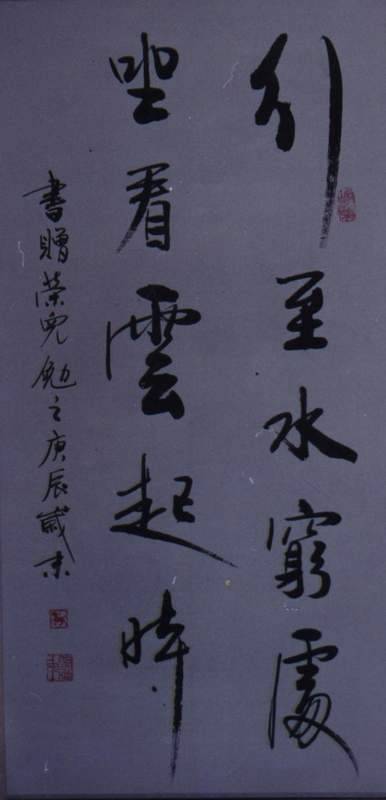 行至水窮處
坐看雲起時
書贈榮兒勉之庚辰歲末